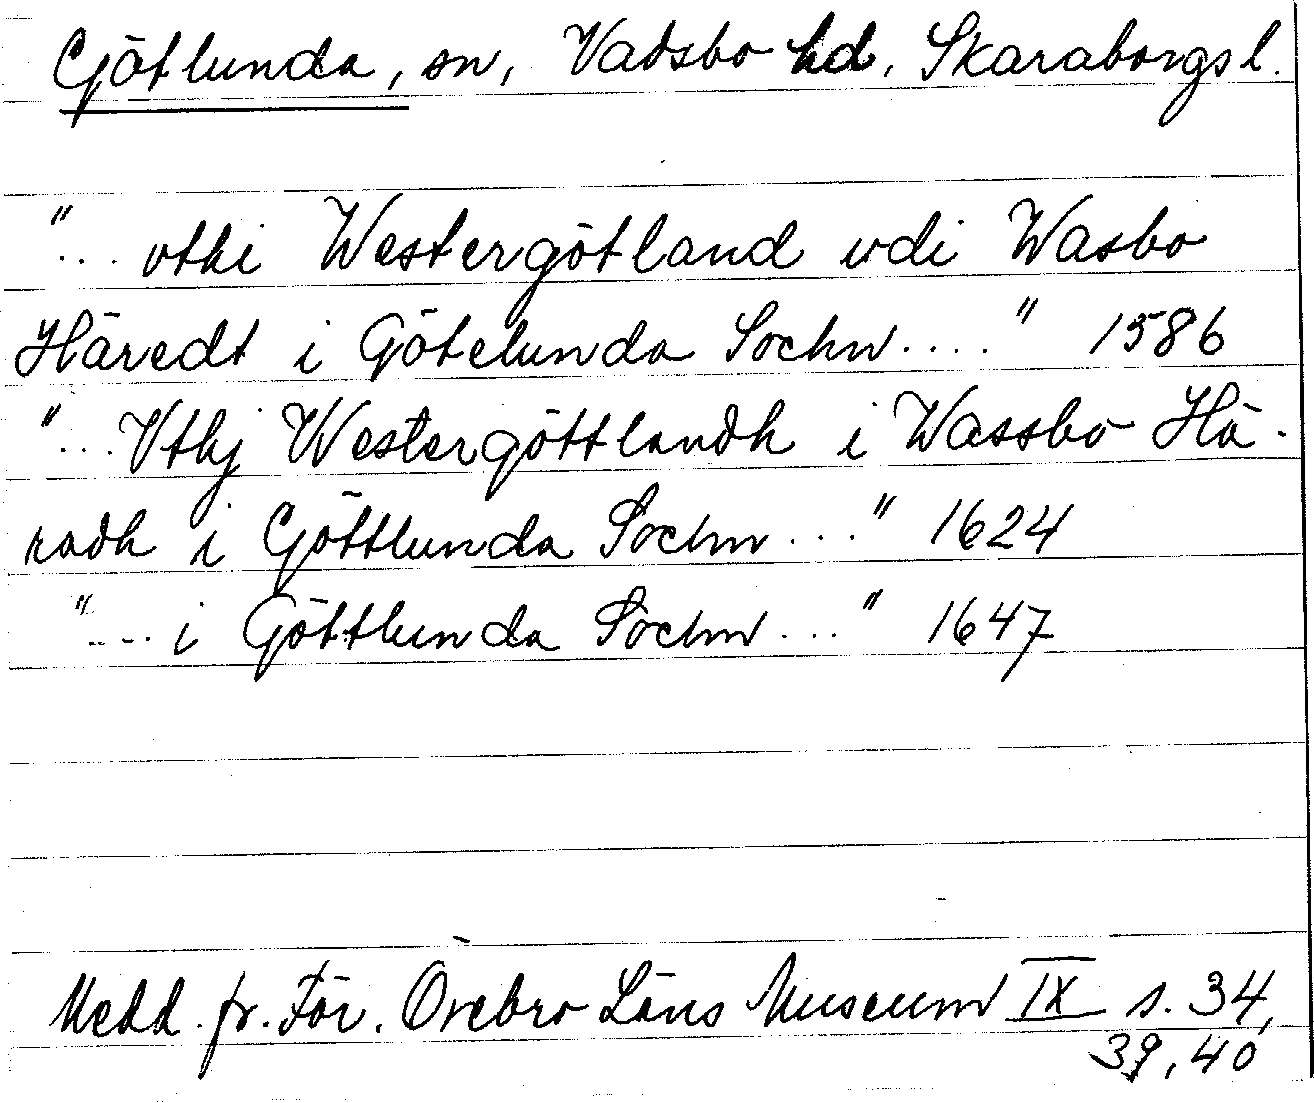 Götlunda, sn, Vadsbo hd, Skaraborgs l.
"... vthi Westergötland vdi Wasbo
Häredt i Götelunda Sochn...." 1586
"... Vthj Westergöttlandh i Wassbo Hä-
radh i Göttlunda Sochn..." 1624
".... i Göttlunda Sochn..." 1647
Medd. fr. För. Örebro Läns Museum IX s. 34,
39, 40